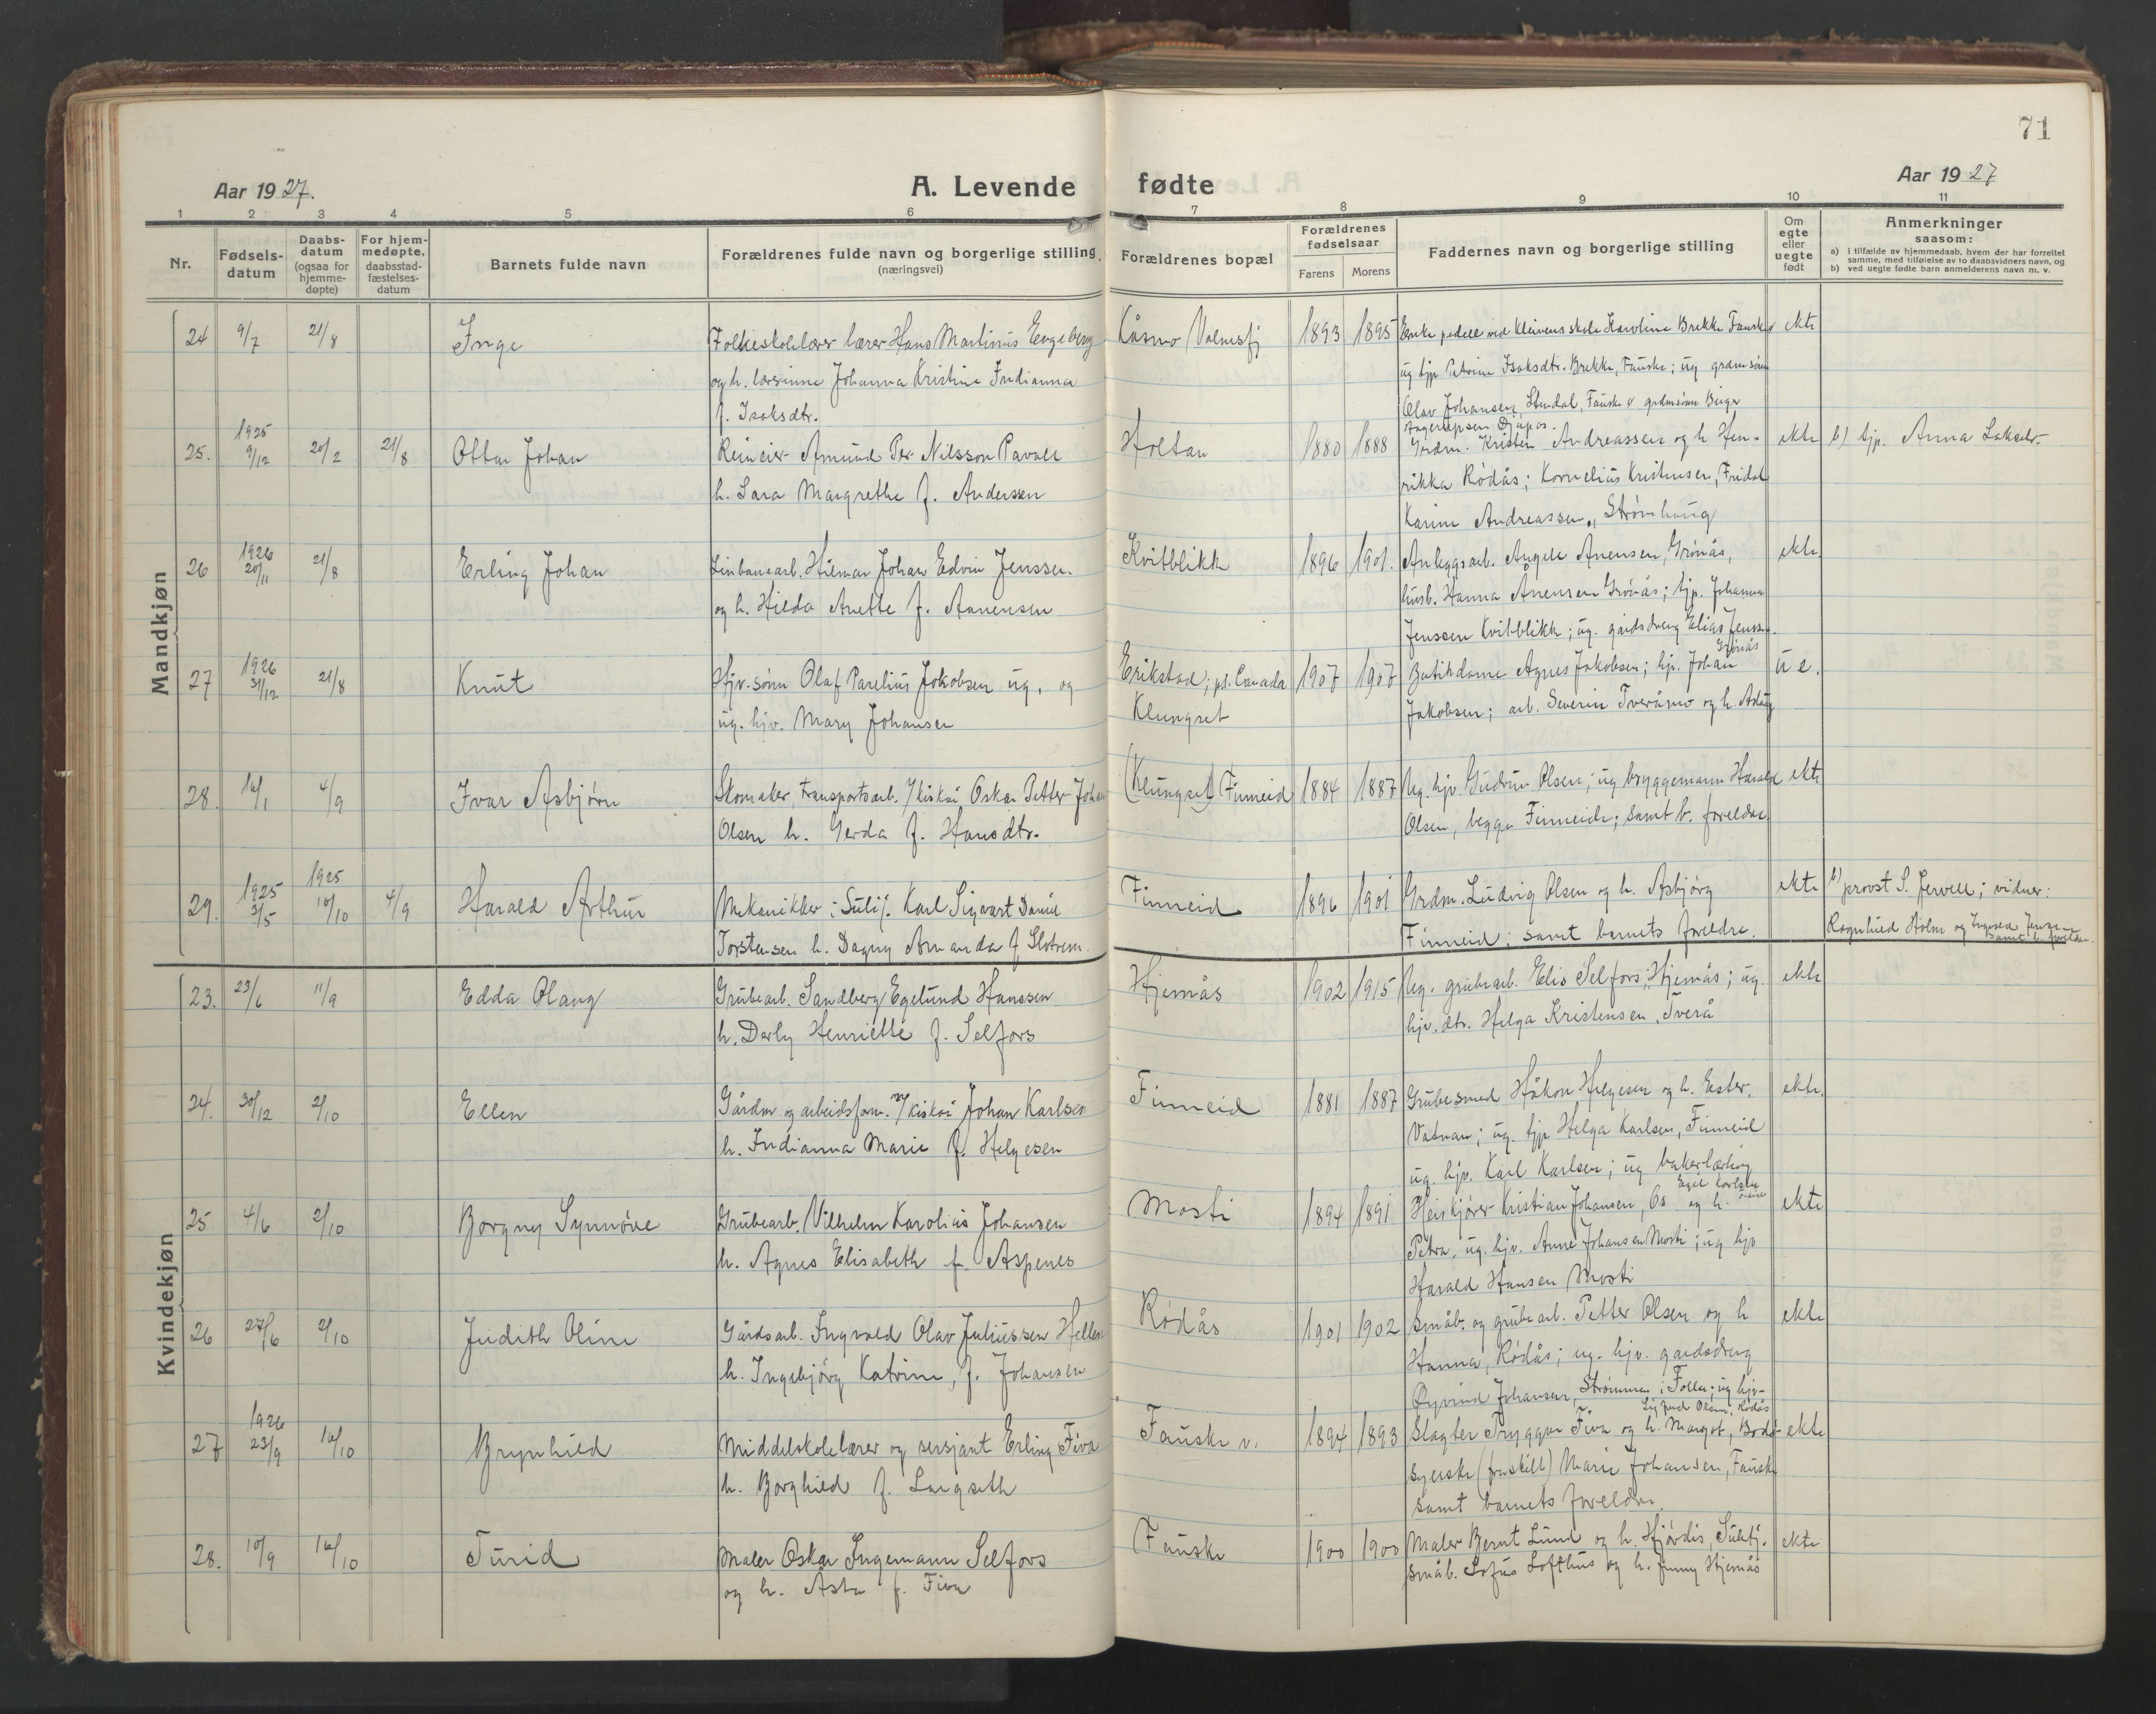 71
Aar 1927.
A. Levende fødte
Aar 1927
1 2 3 4 5 6 7 8 9 10 11
Nr.
Fødselsdatum
Daabsdatum (ogsaa for hjemmedøpte)
For hjemmedøpte, daabsstadfæstelsesdatum
Barnets fulde navn
Forældrenes fulde navn og borgerlige stilling. (næringsvei)
Forældrenes bopæl
Forældrenes fødselsaar
Farens Morens
Faddernes navn og borgerlige stilling
Om egte eller uegte født
Anmerkninger saasom:
a) i tilfælde av hjemmedaab, hvem der har forrettet samme, med tilføielse av to daabsvidners navn, og
b) ved uegte fødte barn anmelderens navn m. v.
Mandkjøn
24 9/7 21/8 Inge Folkeskolelærer lærer Hans Martinus Engeberg Kåsmo Valnesfj 1893 1895 Enke pedell ved Kleivens skole Karoline Brekke Fauske ekte
og h. lærerinne Johanna Kristine Indianna ug tjp Petrine Isaksdtr. Brekke, Fauske; ug grdmsønn
f. Isaksdtr. Olav Johansen, Stendal, Fauske & grdmsønn Birger
25. 1925 9/12 20/2 21/8 Ottar Johan Reineier Amund Per Nilsson Pavall Holtan 1880 1888 Grdm. Kristen Andreassen og h Hen- ekte b) tjp. Anna Lakselv.
h. Sara Margrethe f. Andersen rikka Rödås; Kornelius Kristensen, Fridal
Karine Andreassen, Strømhaug
26 1926 20/11 21/8 Erling Johan Linbanearb. Hilmar Johan Edvin Jenssen. Kvitblikk 1896 1901. Anleggsarb. Angell Anensen, Grönås, ekte.
og h. Hilda Anette f. Annensen husb. Hanna Ånensen Grönås; tjp. Johanna
Jenssen Kvitblikk; ug. gaardsdreng Elias Jenss. Grönås
27 1926 31/12 21/8 Knut Hjv. sönn Olaf Parelius Jakobsen ug. og Erikstad; pt. Canada 1907 1907 Butikdame Agnes Jakobsen; hjv. Johan u e.
ug. hjv. Mary Johansen Klungset Jakobsen; arb. Severin Tveråmo og h. Aslaug
28. 16/1 4/9 Ivar Asbjørn Skomaker, transportsarb. v/ kiskai Oskar Petter Johan (Klungset) Finneid 1884 1887 Ug. hjv. Gudrun Olsen; ug bryggemann Harald ekte
Olsen h. Gerda f. Hansdtr. Olsen, begge Finneid; samt b. foreldre.
29. 1925 3/5 1925 10/10 4/9 Harald Arthur Mekanikker i Sulitj. Karl Sigvart Daniel Finneid 1896 1901 Grdm. Ludvig Olsen og h. Asbjørg ekte b) provst S. Jervell; vidner:
Torstensen h. Dagny Amanda f. Slotrem. Finneid; samt barnets foreldre. Ragnhild Holm og Ingvald Jensen samt b. foreldre.
Kvindekjøn
23. 23/6 11/9 Edda Olaug Grubearb. Sandberg Egelund Hanssen Hjemås 1902 1915 Ug. grubearb. Elis Selfors, Hjemås; ug. ekte
h. Derly Henriette f. Selfors hjv. dtr. Helga Kristensen, Tverå
24. 30/12 2/10 Ellen Gårdm. og arbeidsform. v/ kiskai Johan Karlsen Finneid 1881 1887 Grubesmed Håkon Helgesen og h. Ester, ekte.
h. Indianna Marie f. Helgesen Vatnan; ug. tjp Helga Karlsen, Finneid
ug. hjv. Karl Karlsen; ug bakerlærling Egil Karlsen
25 4/6 2/10 Borgny Synnöve Grubearb. Vilhelm Karolius Johansen Mosti 1894 1891 Heiskjører Kristian Johansen, Os og h. ekte
h. Agnes Elisabeth f. Aspenes Petra, ug. hjv. Anne Johansen Mosti; ug hjv
Harald Hansen Mosti
26 27/6 2/10 Judith Oline Gårdsarb. Ingvald Olav Juliussen Hellen Rödås 1901 1902 Småb. og grubearb. Petter Olsen og h ekte
h. Ingebjörg Katrine, f. Johansen Hanna, Rödås; ug. hjv. gaardsdreng
Öyvind Johansen, Strömmen i Folla; ug hjv. Sigfred Olsen, Rödås
27 1926 23/9 16/10 Brynhild Middelskolelærer og sersjant Erling Fiva Fauske v. 1894 1893 Slagter Tryggve Fiva og h. Margot, Bodö ekte
h. Borghild f. Langseth Syerske (fraskilt) Marie Johansen, Fauske
samt barnets foreldre.
28. 10/9 16/10 Turid Maler Oskar Ingemann Selfors Fauske 1900 1900 Maler Bernt Lund og h. Hjördis, Sulitj. ekte
og h. Asta f. Fiva småb. Sofus Lofthus og h. Jenny Hjemås